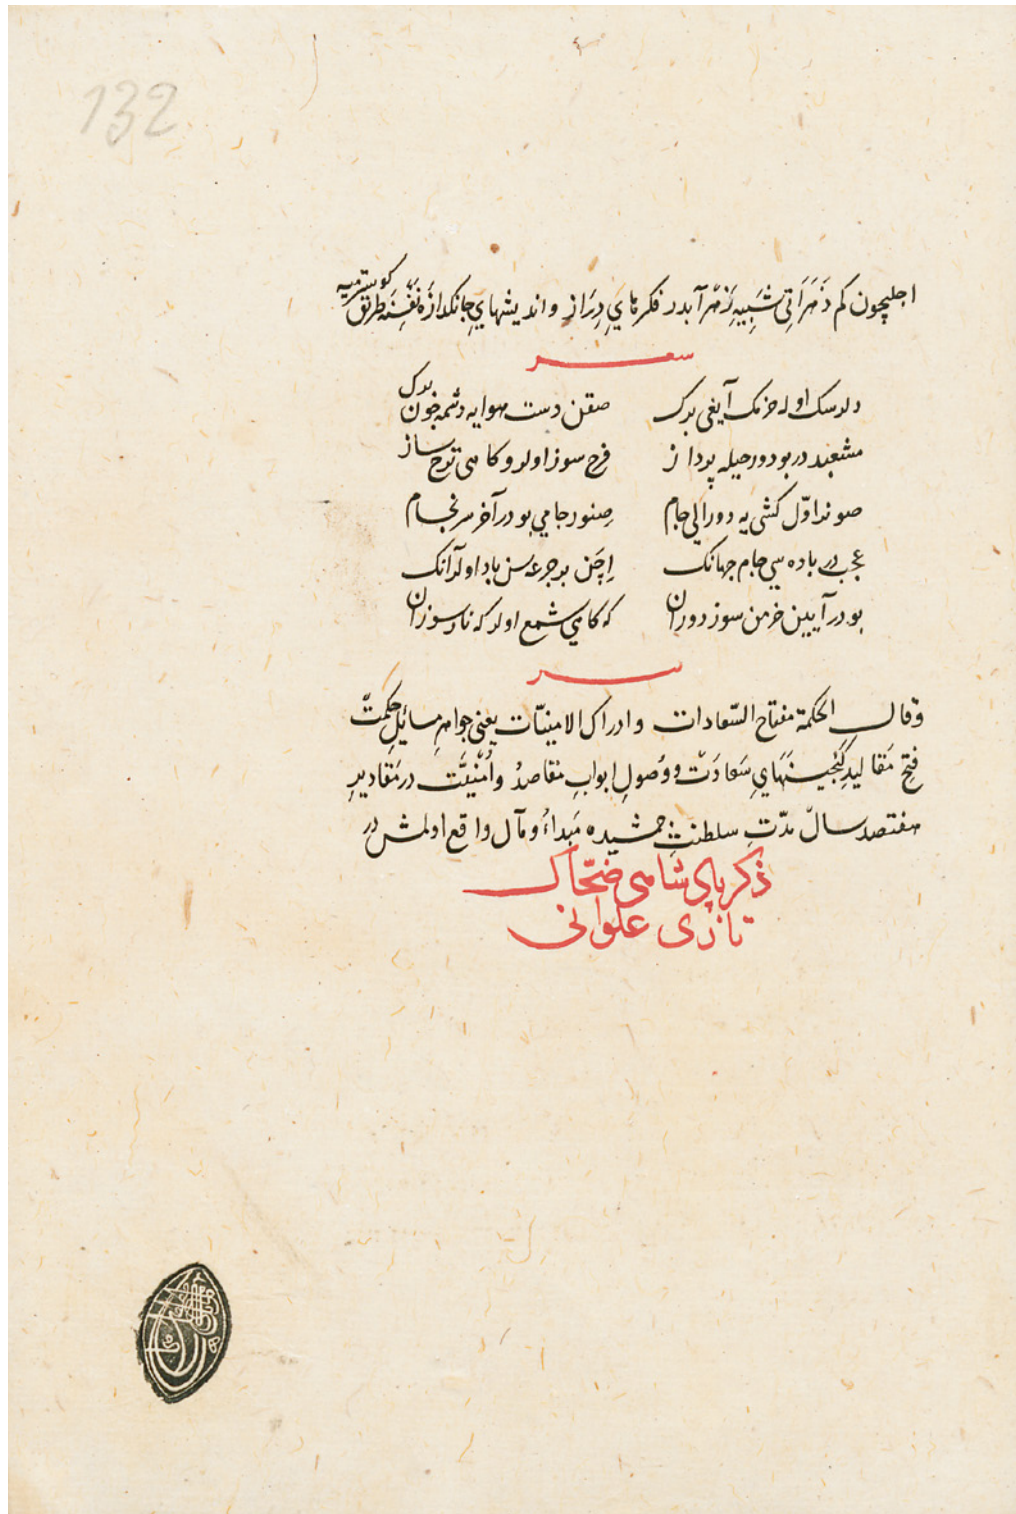 132
اجلیچون کم ذَهَرَاتِی شَبِیهِ زَهْر آبدر فکرهایِ دِرَاز و اندیشهایِ جانکدازه نَفْسِنَه طریق کوسترمیه
سعر
دلرسک اوله خرمک آیغی بدک صقن دست هوایه دشمه خون بدک
مشعبد در بو دور حیله پرداز فرح سوز اولور کاهی ترح ساز
صوندا اوّل کشی یه دور الی جام صنور جامی بودر آخر سرنجام
عجب در باده سی جام جهانک اِچَن بر جرعه سن باد اولر آنک
بودر آیین خرمن سوز دوران که کاهی شمع اولر که نار سوزان
سر
وقال الحکمة مفتاح السّعادات وادراک الامنیّات یعنی جواهر مسائلِ حکمت
فتحِ مَقالیدِ کَنْجینَهَایِ سَعَادَتْ و وُصولِ ابوابِ مقاصد وأُمْنِیَّت در مَقادیرِ
هفتصد سال مدّتِ سلطنتِ جمشیده مَبداءُ و مآل واقع اولمش در
ذکر پادشاهی ضحّاک
تازی علوانی